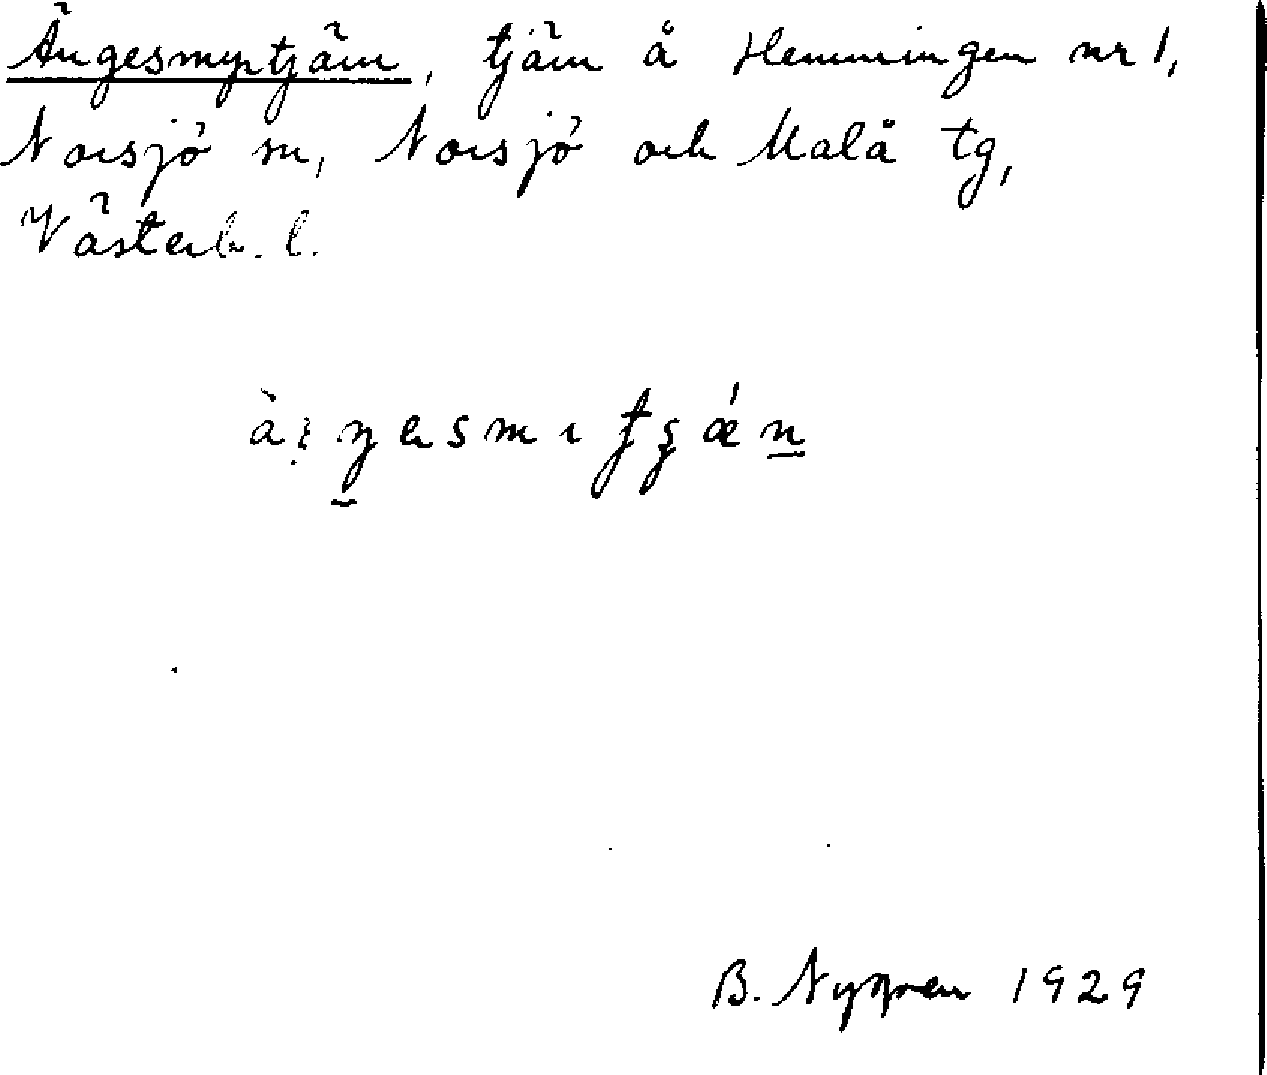 Ängesmyrtjärn, tjärn å Hemmingen nr 1,
Norsjö sn, Norsjö och Malå tg,
Västerb. l.
B. Nygren 1929